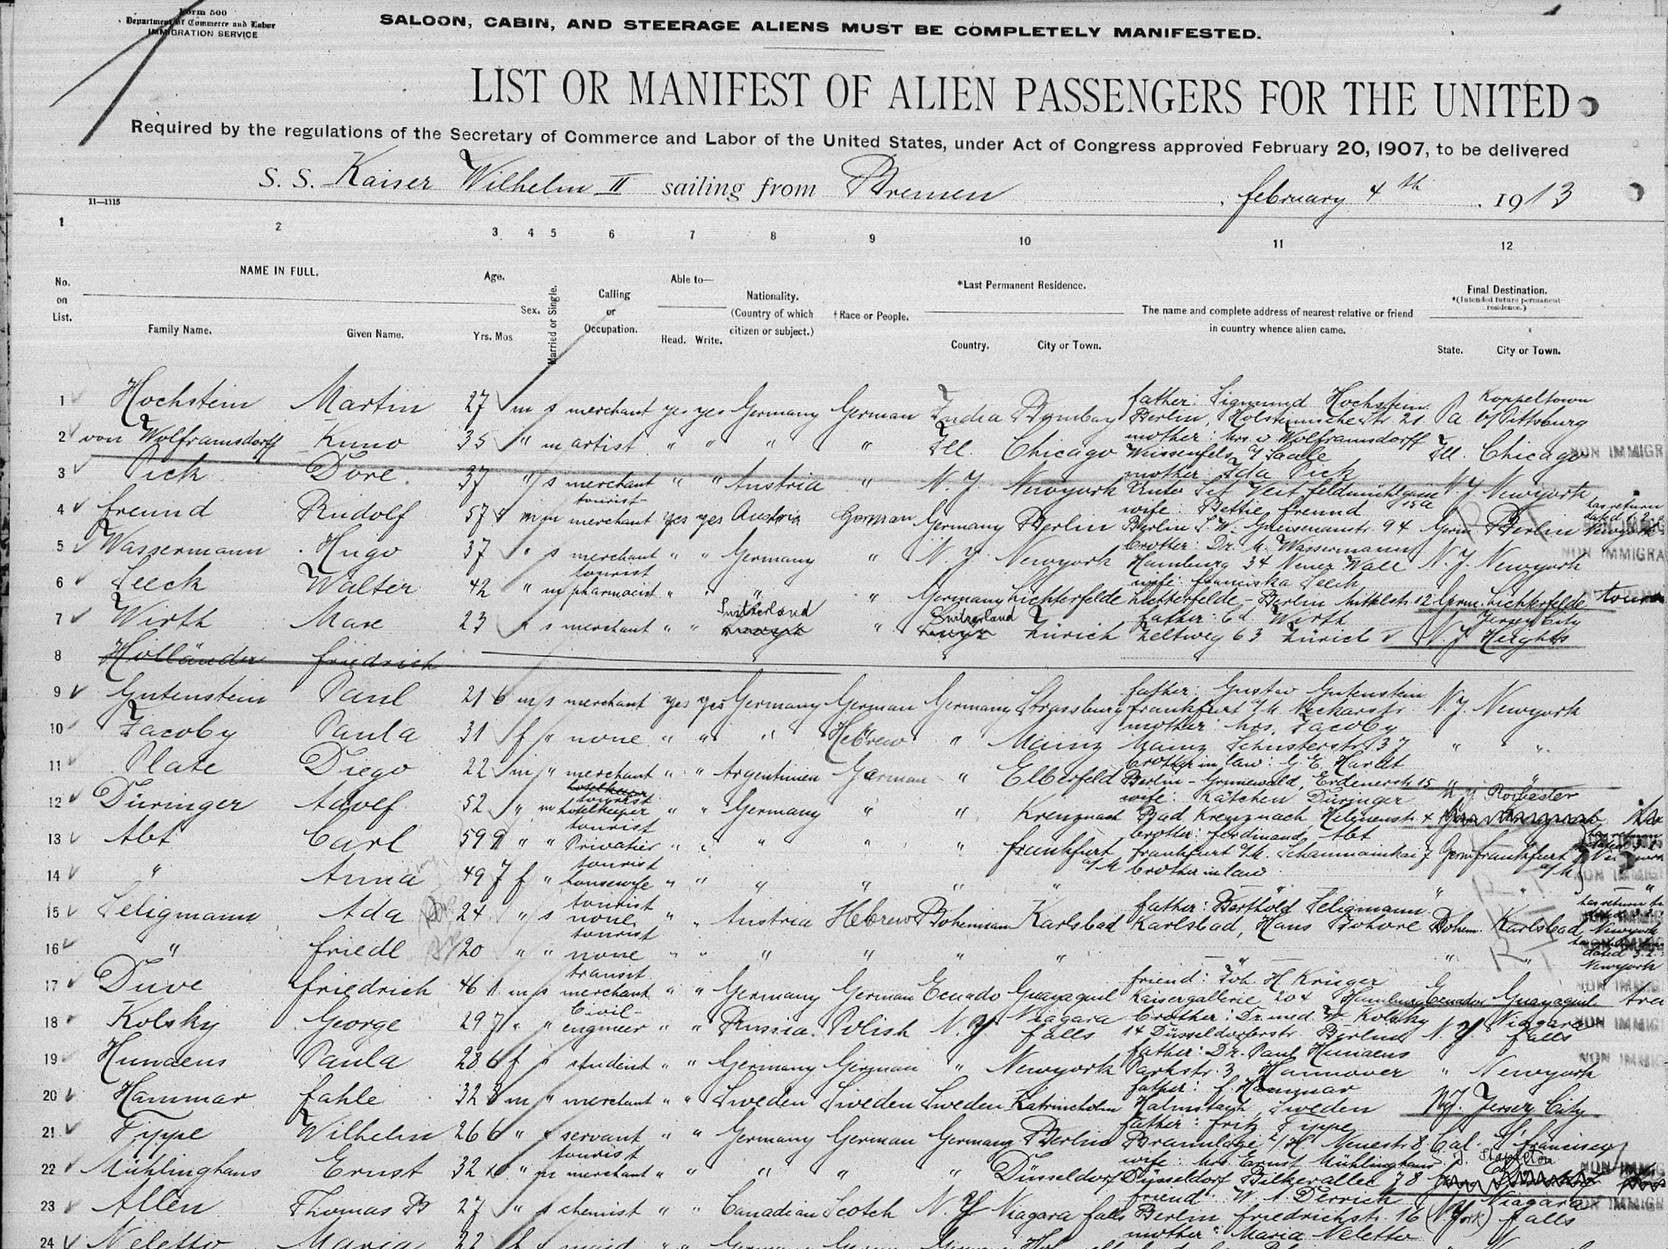 Form 500
Department of Commerce and Labor
IMMIGRATION SERVICE
SALOON, CABIN, AND STEERAGE ALIENS MUST BE COMPLETELY MANIFESTED.
LIST OR MANIFEST OF ALIEN PASSENGERS FOR THE UNITED
Required by the regulations of the Secretary of Commerce and Labor of the United States, under Act of Congress approved February 20, 1907, to be delivered
S. S. Kaiser Wilhelm II sailing from Bremen, february 4th, 1913
11—1115
1 2 3 4 5 6 7 8 9 10 11 12
No. on List.
NAME IN FULL.
Family Name. Given Name.
Age.
Yrs. Mos
Sex.
Married or Single.
Calling or Occupation.
Able to—
Read. Write.
Nationality. (Country of which citizen or subject.)
†Race or People.
*Last Permanent Residence.
Country. City or Town.
The name and complete address of nearest relative or friend in country whence alien came.
Final Destination.
*(Intended future permanent residence.)
State. City or Town.
1 Hochstein Martin 27 m s merchant yes yes Germany German India Bombay father: Sigmund Hochstein Berlin, Holsteinische Str. 21 Pa Koppeltown b/ Pittsburg
2 von Wolframsdorff Kuno 35 " m artist " " " " Ill. Chicago mother: Mrs v Wolframsdorff Weissenfels Saale Ill. Chicago NON IMMIGR
3 Pick Dore 37 " s merchant " " Austria " N.Y. Newyork mother: Ida Pick N.Y. Newyork
4 freund Rudolf 57 m m tourist merchant yes yes Austria German Germany Berlin wife: Bettie freund Berlin S.W. 94 Germ Berlin
5 Wassermann Hugo 37 " s merchant " " Germany " N.Y. Newyork brother: Dr. M. Wassermann Hamburg 34 Neuer Wall N.Y. Newyork NON IMMIGRA
6 Leeck Walter 42 " m tourist pharmacist " " " " Germany Lichterfelde wife: franziska Leeck Lichterfelde - Berlin 12 Germ. Lichterfelde
7 Wirth Max 23 " s merchant " " Switzerland " Switzerland Zürich father: Wirth Zeltweg 63 Zürich V N.J. Jersey City Heights
8 Holländer friedrich
9 Gutenstein Paul 21 6 m s merchant yes yes Germany German Germany Strassburg father: Gustav Gutenstein frankfurt a/M. Neckarstr. N.Y. Newyork
10 Jacoby Paula 31 f s none " " " Hebrew " Mainz mother: Mrs. Jacoby Mainz Schusterstr. 37 " "
11 Plate Diego 22 m " merchant " " Argentinien German " Elberfeld brother in law: G.E. Hardt Berlin - Grunewald, Erdenerstr. 15 " "
12 Düringer Adolf 52 " m tourist hotelkeeper " " Germany " " Kreuznach wife: Kätchen Düringer Bad Kreuznach N.Y. Rochester
13 Abt Carl 59 9 " " tourist Privatier " " " " " frankfurt a/M brother: ferdinand Abt frankfurt a/M. Schaumainkai 7 Germ frankfurt a/M
14 " Anna 49 7 f " tourist housewife " " " " " " brother in law "
15 Seligmann Ada 24 " s tourist none " " Austria Hebrew Bohemian Karlsbad father: Berthold Seligmann Karlsbad, Haus Bohem. Karlsbad
16 " friedl 20 " " tourist none " " " " " " " " "
17 Duve friedrich 46 1 m s transit merchant " " Germany German Ecuador Guayaquil friend: Joh. H. Krüger Kaisergallerie 204 Hamburg Ecuador Guayaquil
18 Kolsky George 29 7 " " Civil-engineer " " Russia Polish N.Y. Niagara falls brother: Dr. med. Kolsky 14 Düsseldorferstr. Berlin N.Y. Niagara falls NON IMMIG
19 Hunaens Paula 28 6 f s student " " Germany German " Newyork father: Dr. Paul Hunaens Parkstr. 3, Hannover " Newyork NON IMMIG
20 Hammar fahle 32 8 m " merchant " " Sweden Sweden Sweden Katrineholm father: f. Hammar Halmstadt, Sweden N.J. Jersey City
21 Tippe Wilhelm 26 6 " s servant " " Germany German Germany Berlin father: fritz Tippe Braunlage a/H. Neuestr. 8 Cal. S. francisco
22 Mühlinghaus Ernst 32 " m tourist merchant " " " " " Düsseldorf wife: Mrs. Ernst Mühlinghaus Düsseldorf Bilkerallee 78 NON IMMIG
23 Allen Thomas B 27 " s chemist " " Canadean Scotch N.Y. Niagara falls friend: W. A. Derrick Berlin friedrichstr. 16 N.York Niagara falls NON IMMIGR
24 Neletto Maria 22 f " maid " " Germany German Germany mother: Maria Neletto